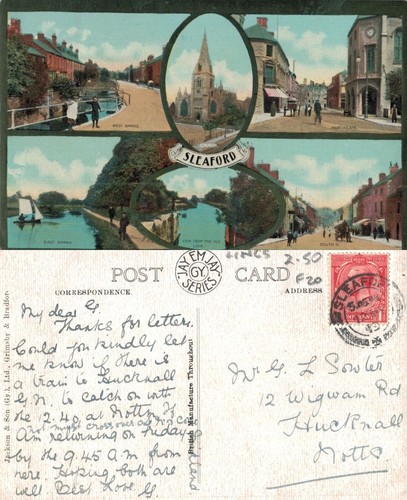 WEST BANKS
CHURCH
SLEAFORD
EAST BANKS
SOUTH ST
LINCS 2.50
F20
POST CARD
JAY EM JAY
GY
SERIES
CORRESPONDENCE.
ADDRESS
SLEAFORD
Jackson & Son (Gy.), Ltd., Grimsby & Bradford
British Manufacture Throughout
My dear G
Thanks for letters.
Could you kindly let
me know if there is
a train to Hucknall
G.N. to catch on with
the 2.40 at Nottm.
Am returning on Friday
by the 9.45 a.m from
here. Hoping both are
well. Best Love G
Mr G. L Sowter
12 Wigwam Rd
Hucknall
Notts